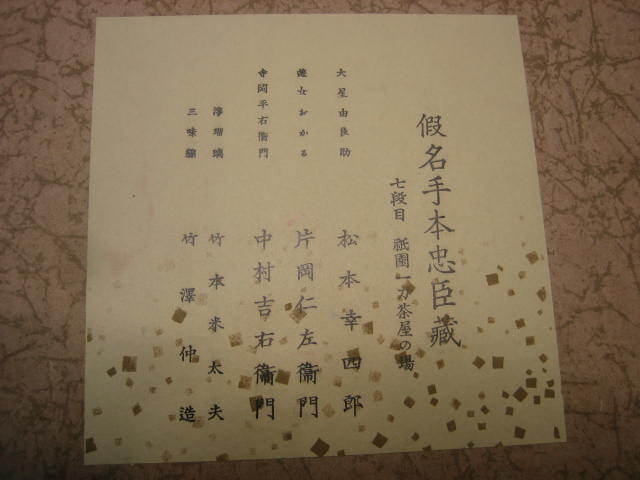 假名手本忠臣藏
七段目 祇園一力茶屋の場
大星由良助 松本幸四郎
遊女おかる 片岡仁左衞門
寺岡平右衞門 中村吉右衞門
淨瑠璃 竹本米太夫
三味線 竹澤仲造